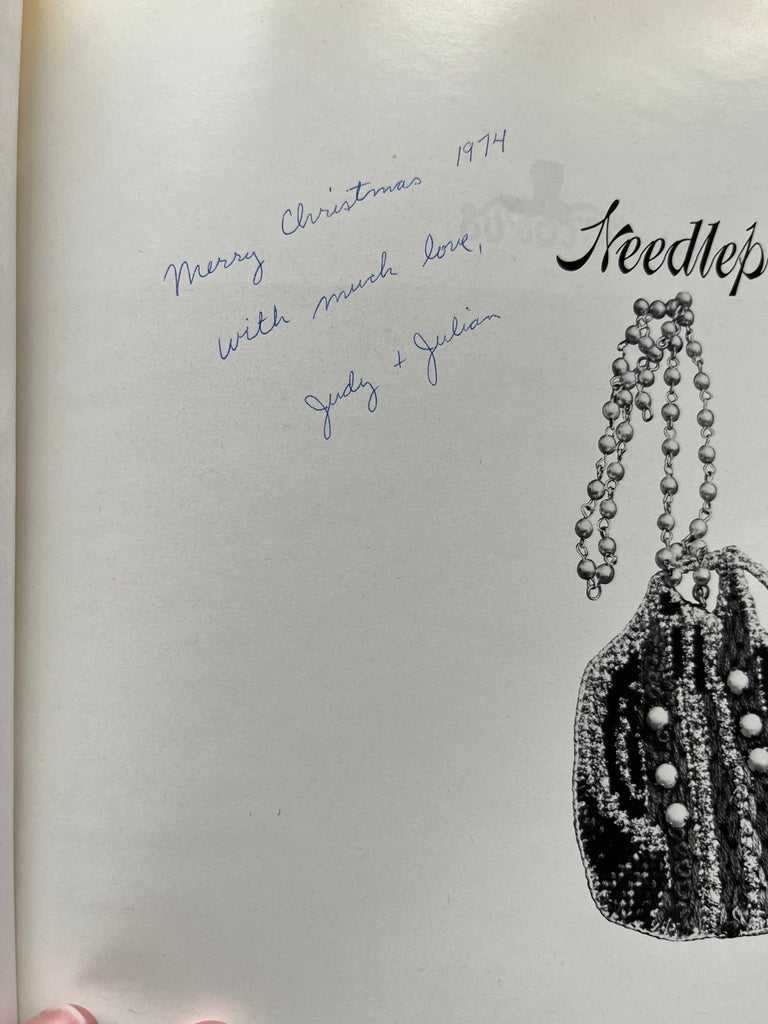 Merry Christmas 1974
with much love,
Judy + Julian
Needlep